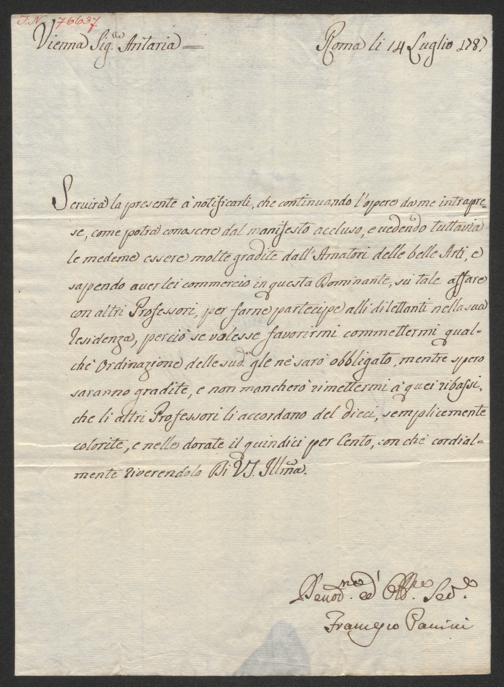 I.N. 76637
Vienna Sig.re Artaria
Roma li 14 Luglio 1787
Servirà la presente à notificarli, che continuando l'opere da me intrapre
se, come potrà conoscere dal manifesto accluso, e vedendo tuttavia
le medeme essere molte gradite dall'Amatori delle belle Arti, e
sapendo aver lei commercio in questa Dominante, sui tale affare
con altri Professori, per farne partecipe alli dilettanti nella sua
Residenza, perciò se volesse favorirmi commettermi qual=
chè Ordinazione delle sud.e gle nè sarò obbligato, mentre spero
saranno gradite, e non mancherò rimettermi à quei ribassi,
che li altri Professori li accordano del dieci, semplicemente
colorite, e nelle dorate il quindici per Cento, con chè cordial=
mente riverendolo Di VS. Illma.
Devot.mo ed Obb.mo Serv.e
Francesco Panini